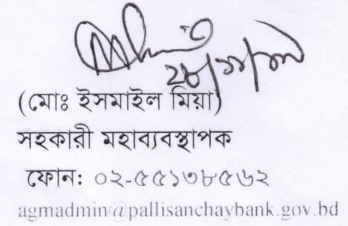 (মোঃ ইসমাইল মিয়া)
সহকারী মহাব্যবস্থাপক
ফোন: ০২-৫৫১৩৮৫৬২
agmadmin@pallisanchaybank.gov.bd